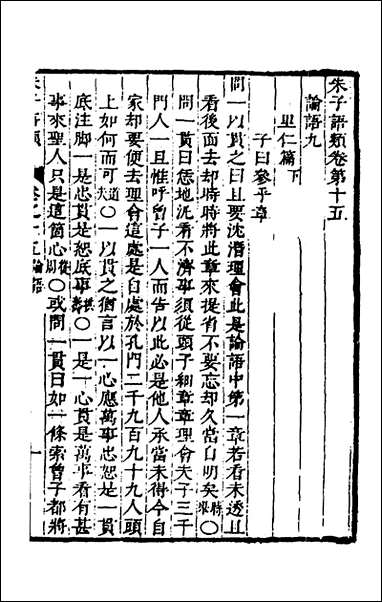 朱子語類卷第十五
論語九
里仁篇下
子曰參乎章
問一以貫之曰且要沈潛理會此是論語中第一章若看未透且
看後面去却時時將此章來提省不要忘却久當自明矣時舉〇
問一貫曰恁地泛看不濟事須從頭子細章章理會夫子三千
門人一旦惟呼曾子一人而告以此必是他人承當未得今自
家却要便去理會這處是自處於孔門二千九百九十九人頭
上如何而可道夫〇一以貫之猶言以一心應萬事忠恕是一貫
底注脚一是忠貫是恕底事〇一是一心貫是萬事看有甚
事來聖人只是這箇心〇或問一貫曰如一條索曾子都將